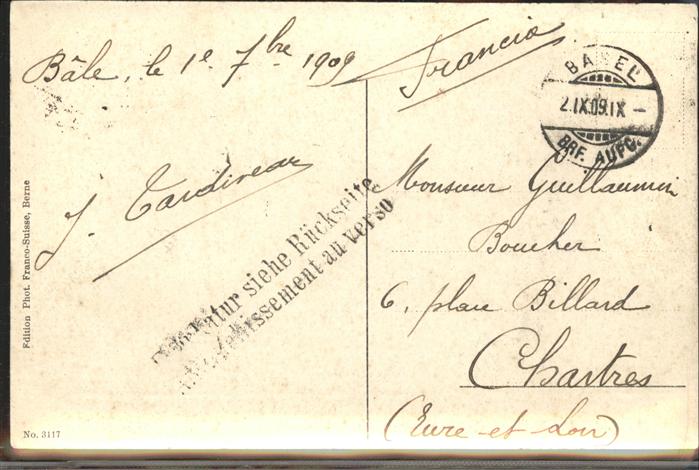 Bâle, le 1e 7bre 1909
Francia
BASEL
2.IX.09.IX –
BRF. AUFG.
siehe Rückseite
au verso
Monsieur Guillaumin
Boucher
6, place Billard
Chartres
(Eure et Loir)
Edition Phot. Franco-Suisse, Berne
No. 3117